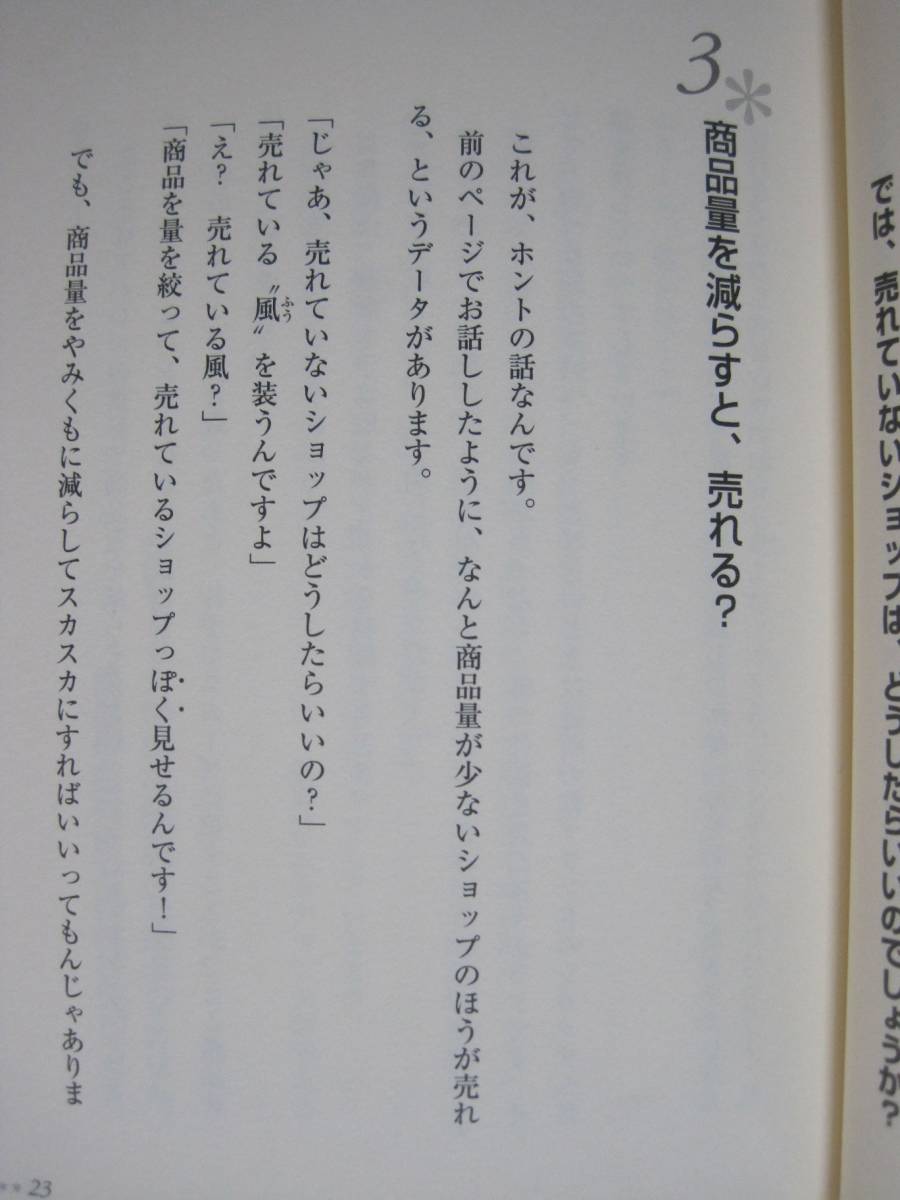 では、売れていないショップは、どうしたらいいのでしょうか?
3*
商品量を減らすと、売れる?
これが、ホントの話なんです。
前のページでお話ししたように、なんと商品量が少ないショップのほうが売れ
る、というデータがあります。
「じゃあ、売れていないショップはどうしたらいいの?」
「売れている〝風〟を装うんですよ」
ふう
「え? 売れている風?」
「商品を量を絞って、売れているショップっぽく見せるんです!」
でも、商品量をやみくもに減らしてスカスカにすればいいってもんじゃありま
** 23